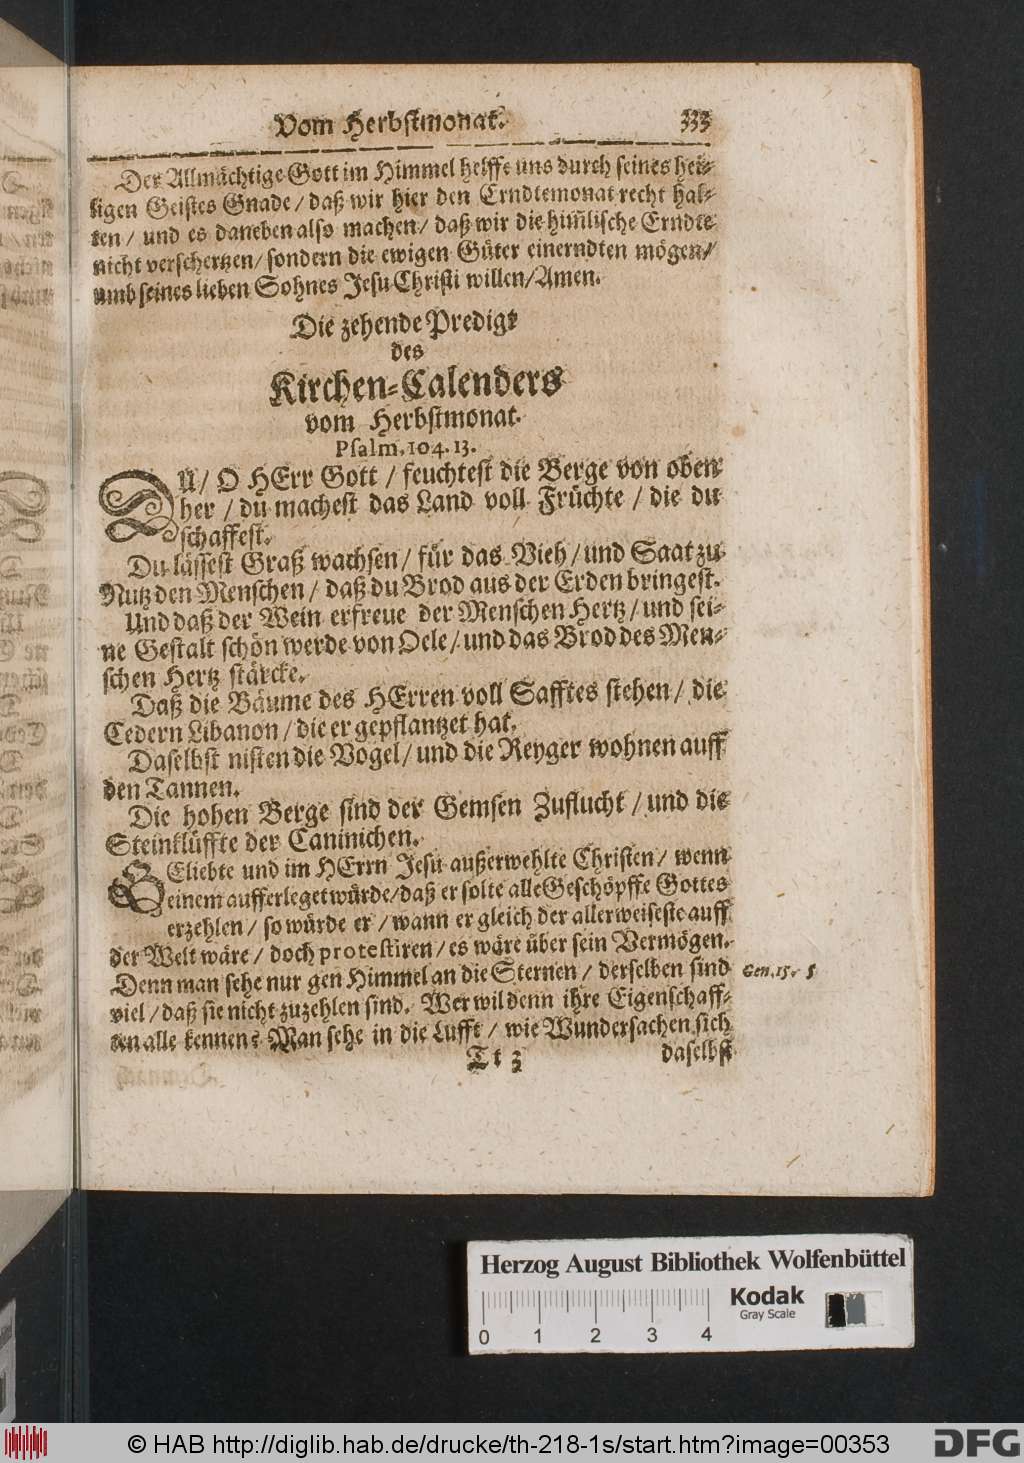 Vom Herbstmonat. 333
Der Allmächtige Gott im Himmel helffe uns durch seines hei-
ligen Geistes Gnade / daß wir hier den Erndtemonat recht hal-
ten / und es daneben also machen / daß wir die him̃lische Erndte
nicht verschertzen / sondern die ewigen Güter einerndten mögen /
umb seines lieben Sohnes Jesu Christi willen / Amen.
Die zehende Predigt
des
Kirchen-Calenders
vom Herbstmonat.
Psalm. 104. 13.
DU / O HErr Gott / feuchtest die Berge von oben
her / du machest das Land voll Früchte / die du
schaffest.
Du lässest Graß wachsen / für das Vieh / und Saat zu
Nutz den Menschen / daß du Brod aus der Erden bringest.
Und daß der Wein erfreue der Menschen Hertz / und sei-
ne Gestalt schön werde von Oele / und das Brod des Men-
schen Hertz stärcke.
Daß die Bäume des HErren voll Safftes stehen / die
Cedern Libanon / die er gepflantzet hat.
Daselbst nisten die Vogel / und die Reyger wohnen auff
den Tannen.
Die hohen Berge sind der Gemsen Zuflucht / und die
Steinklüffte der Caninichen.
GEliebte und im HErrn Jesu außerwehlte Christen / wenn
einem aufferleget würde / daß er solte alle Geschöpffe Gottes
erzehlen / so würde er / wann er gleich der allerweiseste auff
der Welt wäre / doch protestiren / es wäre über sein Vermögen.
Denn man sehe nur gen Himmel an die Sternen / derselben sind Gen. 15. 5
viel / daß sie nicht zuzehlen sind. Wer wil denn ihre Eigenschaff-
ten alle kennen? Man sehe in die Lufft / wie Wundersachen sich
Tt 3 daselbst
Herzog August Bibliothek Wolfenbüttel
Kodak
Gray Scale
0 1 2 3 4
© HAB http://diglib.hab.de/drucke/th-218-1s/start.htm?image=00353
DFG